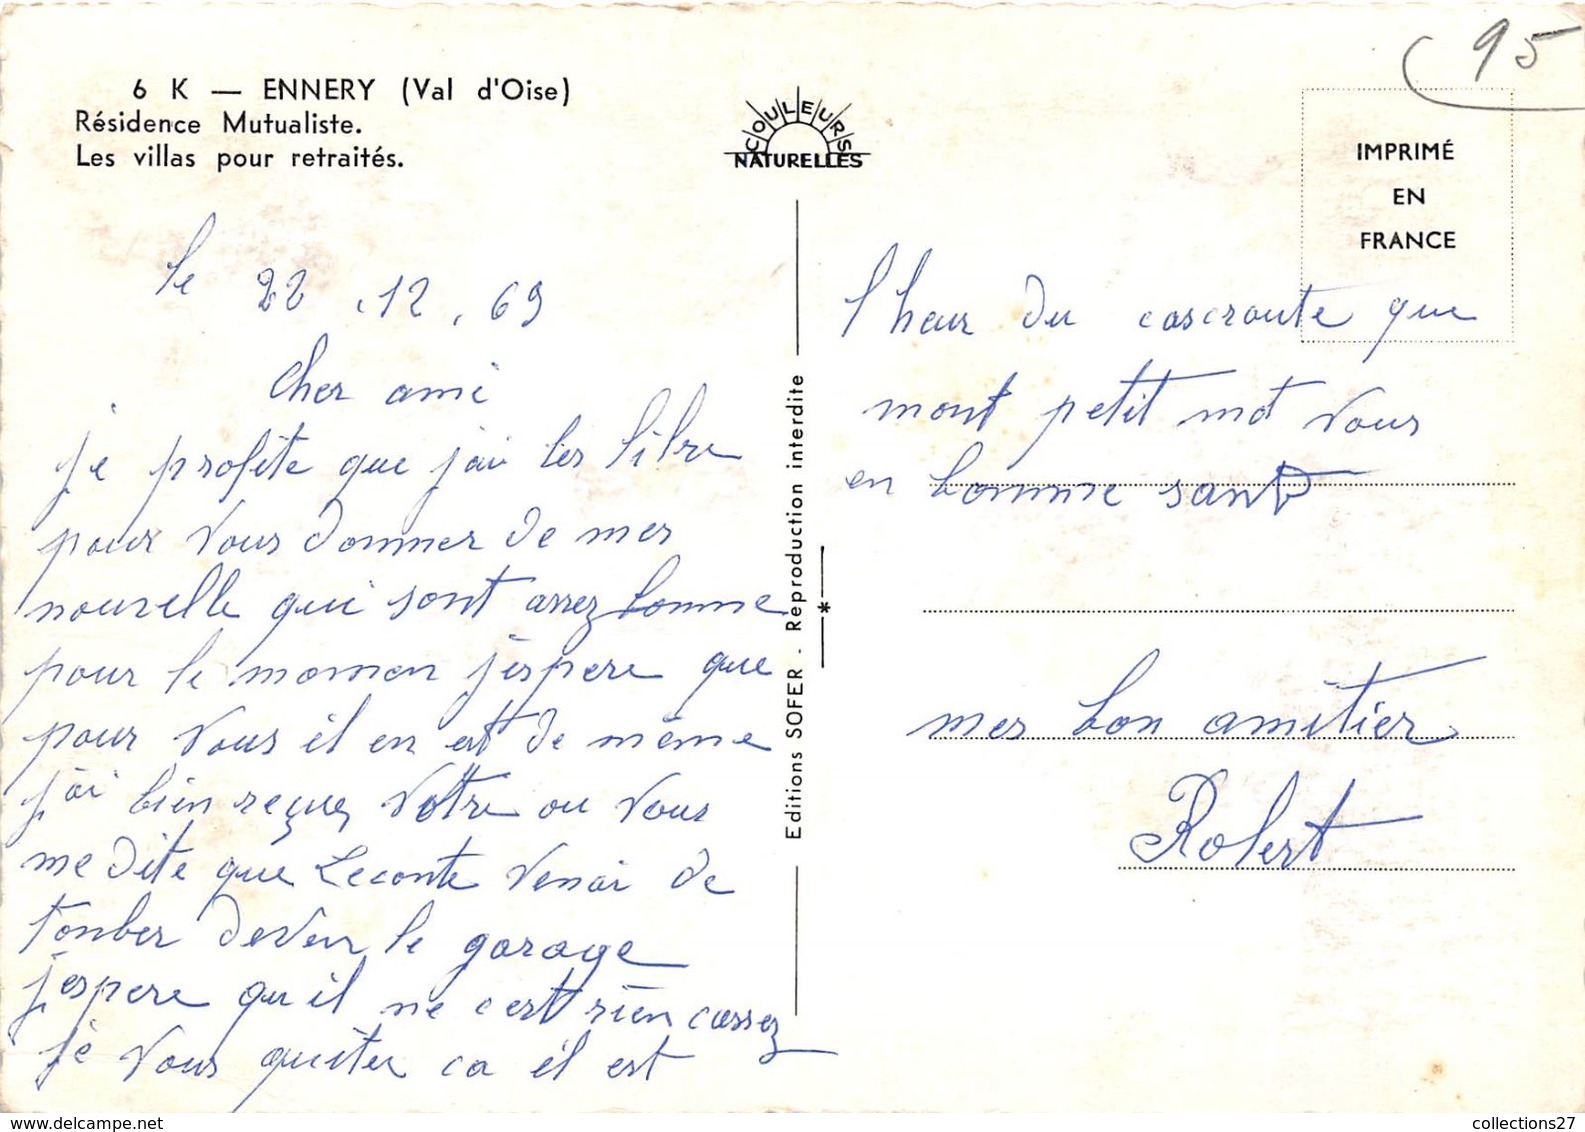 95
6 K — ENNERY (Val d'Oise)
Résidence Mutualiste.
Les villas pour retraités.
COULEURS
NATURELLES
IMPRIMÉ
EN
FRANCE
le 22.12.69
Cher ami
je profite que j'ai les libre
pour vous donner de mes
nouvelle qui sont assez bonne
pour le momen j'espere que
pour vous il en est de même
j'ai bien reçue votre ou vous
me dite que Leconte venai de
tonber deven le garage
j'espere qu'il ne c'est rien cassez
je vous quiter ca il est
Editions SOFER - Reproduction interdite
*
l'heur du cascroute que
mont petit mot vous
en bonne santé
mes bon amitier
Robert
collections27
www.delcampe.net